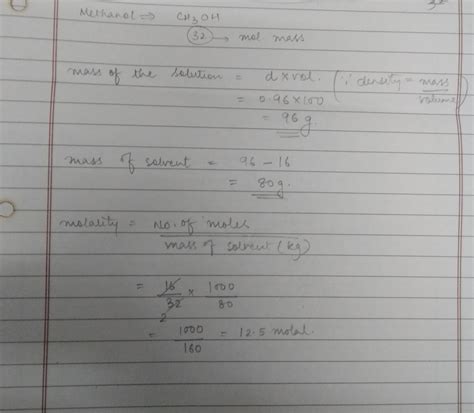 Methanol ⇒ CH3OH
32 → mol mass
mass of the solution = d x vol. (∵ density = mass / volume)
= 0.96 x 100
= 96 g
mass of solvent = 96 - 16
= 80g.
molality = No. of moles / mass of solvent (kg)
= 16/32 x 1000/80
2
= 1000/160 = 12.5 molal.